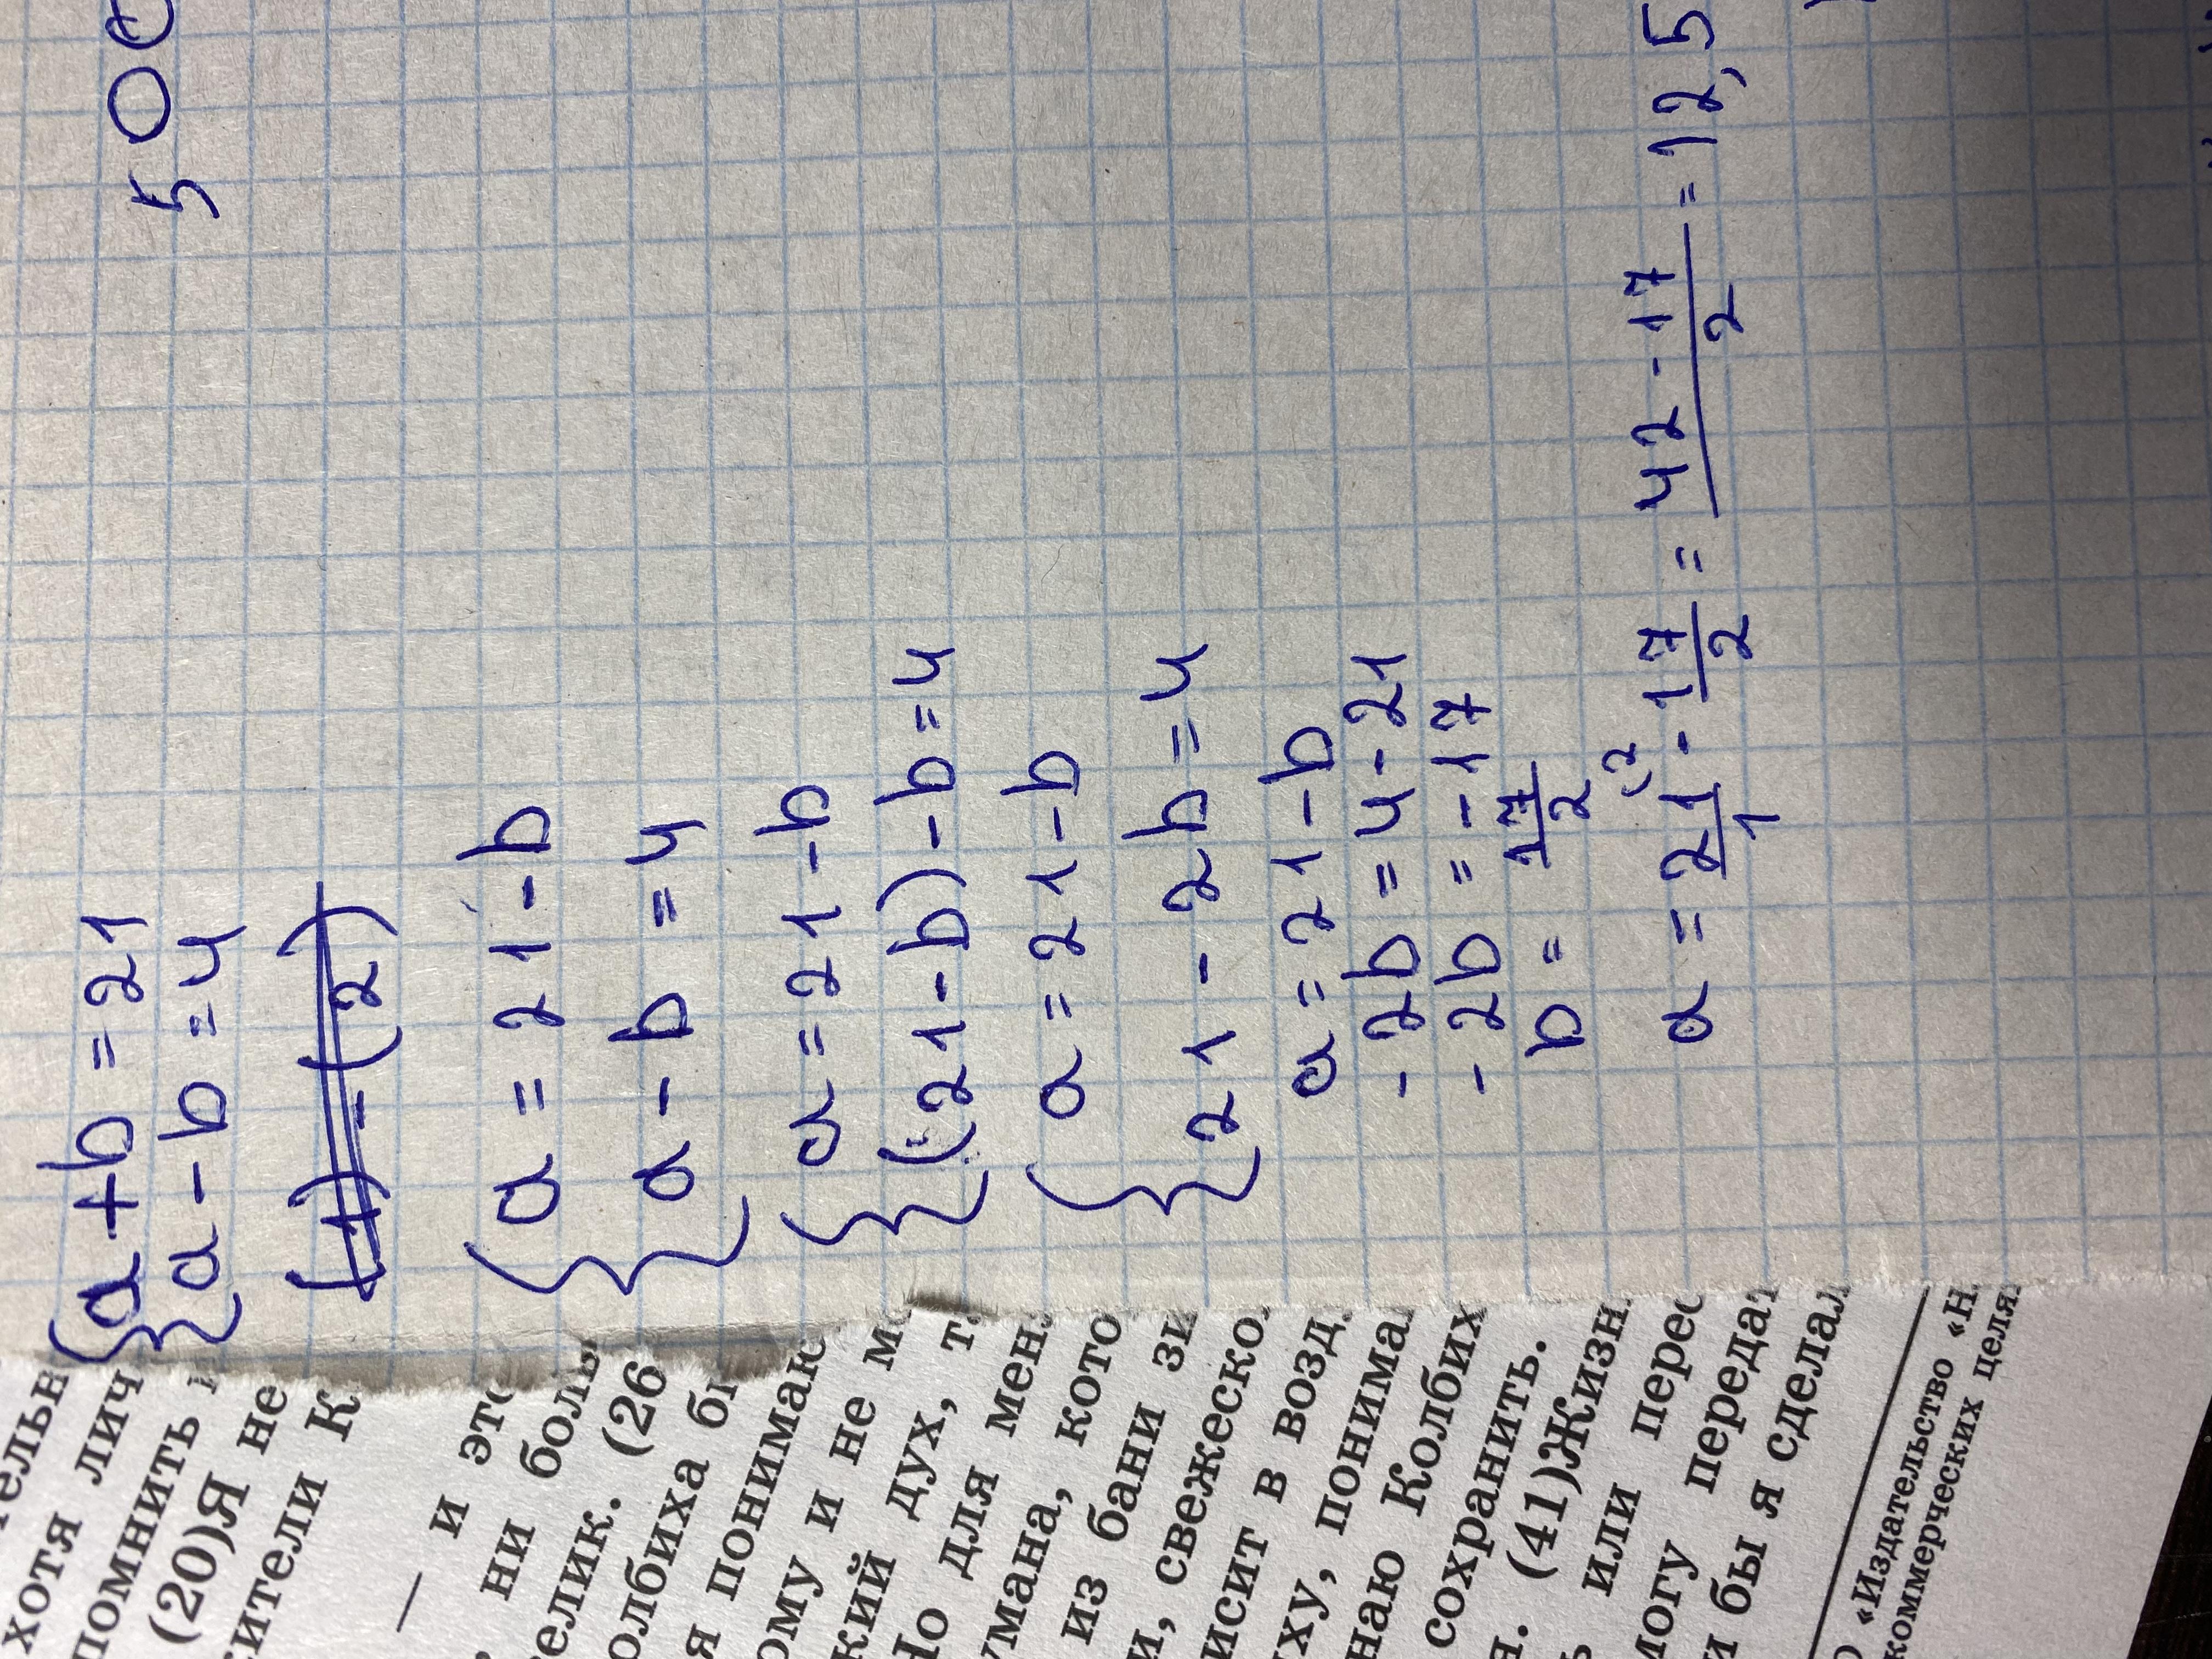 {a+b=21
{a-b=4
(1)-(2)
{a=21-b
a-b=4
{a=21-b
(21-b)-b=4
{a=21-b
21-2b=4
a=21-b
-2b=4-21
-2b=-17
b=17/2
a=21/1(2-17/2=42-17/2=12,5
50
хотя лич
помнить
(20)Я не
сители К
— и это
ни боль
елик. (26
олбиха бы
я понимаю
ому и не м
кий дух, т
Но для мен
умана, кото
из бани зи
и, свежеско
исит в возд
иху, понима
наю Колбих
сохранить.
н. (41)Жизн
ь или перес
могу передат
и бы я сделал
О «Издательство «Н
коммерческих целя